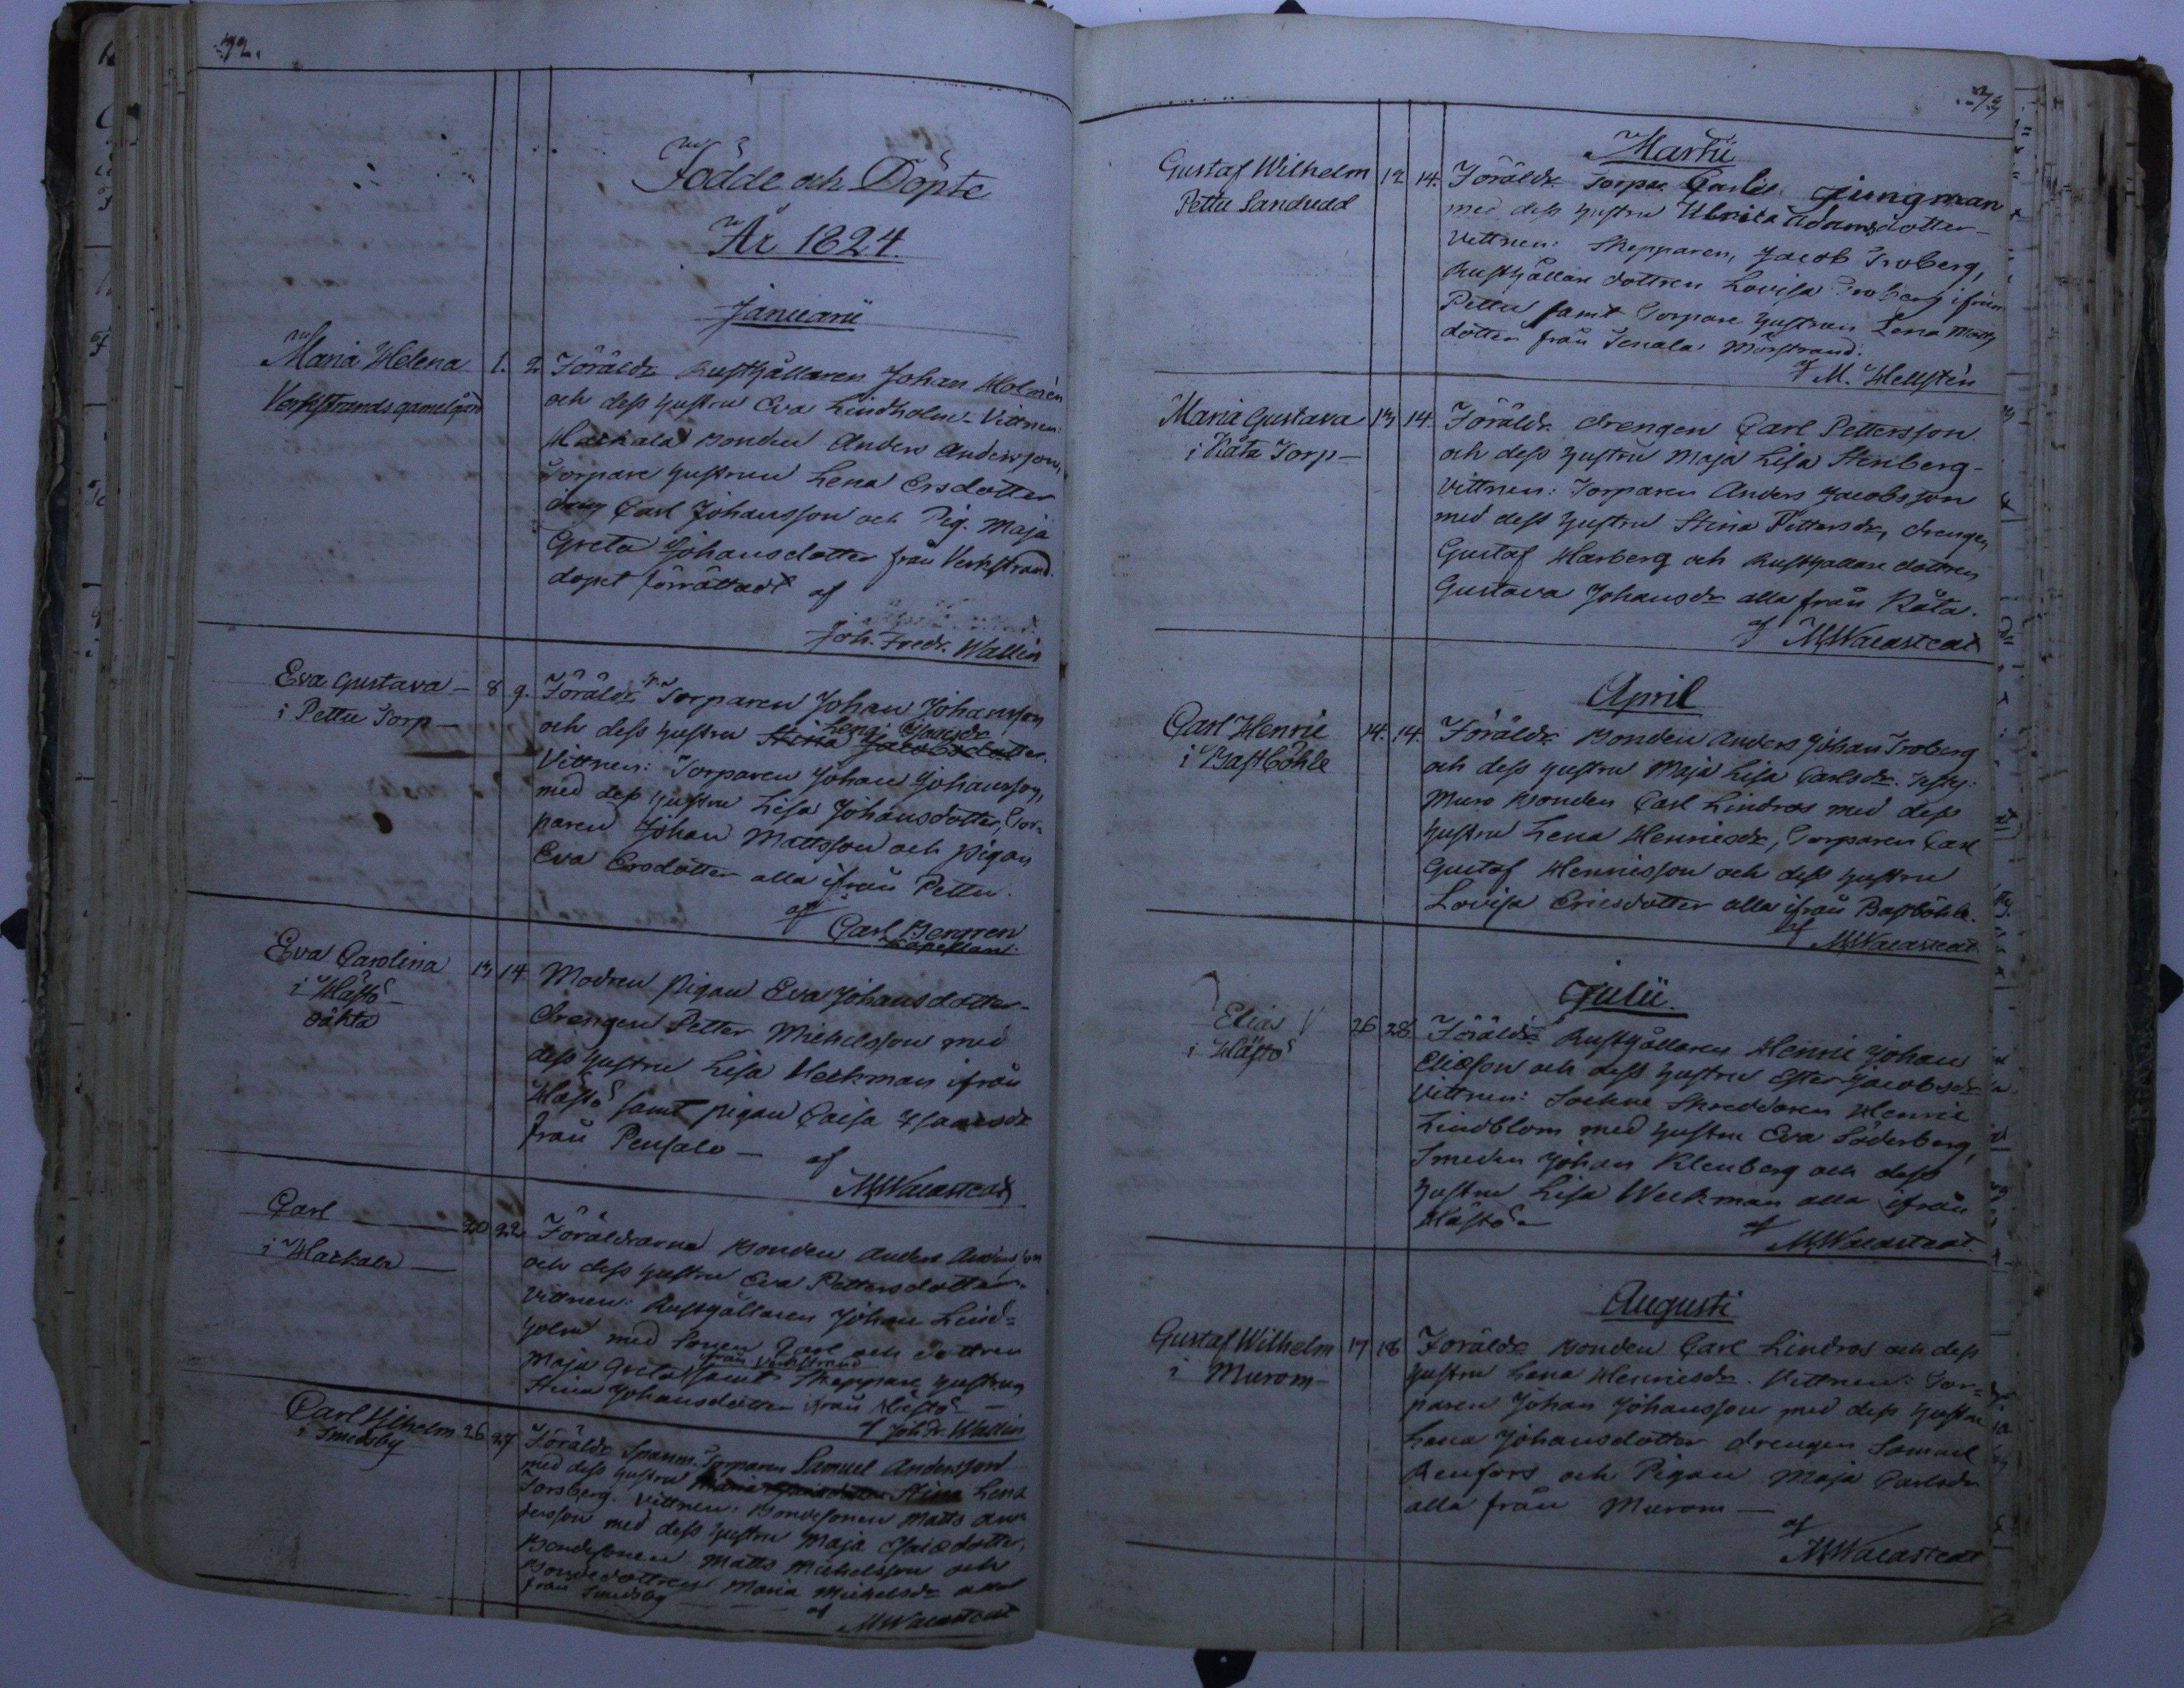 72.
Födde och Döpte
År 1824.
Januarii
Maria Helena 1. 2. Föräldr. Rusthållaren Johan Holmén
Verkstrands gamelgård och dess hustru Eva Lindholm - Vittnen:
Harkala Bonden Anders Andersson,
Torpare hustrun Lena Ersdotter
dreng Carl Johansson och Pig. Maja
Greta Johansdotter från Verkstrand.
dopet förrättadt af
Joh. Fredr. Wallin
Eva Gustava - 8 9. Föräldr. Torparen Johan Johansson
i Pettu Torp - och dess hustru Stina Jacobsdotter
Lena Isacsdr
Vittnen: Torparen Johan Johansson,
med dess hustru Lisa Johansdotter, Tor=
paren Johan Mattsson och pigan
Eva Ersdotter alla ifrån Pettu.
af Carl Bergren
Capellant.
Eva Carolina 13 14. Modren pigan Eva Johansdotter -
i Hästö - Drengen Petter Michelsson med
oäkta dess hustru Lisa Veckman ifrån
Hästö samt pigan Caisa Isaacsdr
från Pensalo - af
Carl 20 22 Föräldrarne Bonden Anders Andersson
i Harkala - och dess hustru Eva Pettersdotter.
Vittnen: Rusthållaren Johan Lind=
holm med Sonen Carl och dottren
ifrån Verkstrand
Maja Greta samt Skeppare hustrun
Stina Johansdotter ifrån Hästö -
af Joh. Fr. Wallin
Carl Wilhelm 26 27 Föräldr. Spanm. Torparen Samuel Andersson
i Smedsby med dess hustru Stina Lena
Forsberg. Vittnen: Bondesonen Matts An=
dersson med dess hustru Maja Isacsdotter,
Bondesonen Matts Michelsson och
Bondedottren Maria Michelsdr alla
från Smedsby af
73
Martii
Gustaf Wilhelm 12 14. Föräldr. Torpar. Carl Jungman
Pettu Sandudd med dess hustru Ulrica Adamsdotter -
Vittnen: Skepparen, Jacob Troberg,
Rusthållare dottren Lovisa Troberg ifrån
Pettu samt Torpare hustrun Lena Matts
dotter från Tenala Mörstrand.
af M. Hellstén
Maria Gustava 13 14. Föräldr. drengen Carl Pettersson
i Råta Torp - och dess hustru Maja Lisa Stenberg -
Vittnen: Torparen Anders Jacobsson
med dess hustru Stina Pettersdr, drengen
Gustaf Harberg och Rusthållare dottren
Gustava Johansdr alla från Råta.
af
April
Carl Henric 14. 14. Föräldr. Bonden Anders Johan Troberg
i Bastböhle och dess hustru Maja Lisa Carlsdr. Testes:
Muro Bonden Carl Lindros med dess
hustru Lena Henricsdr, Torparen Carl
Gustaf Henricsson och dess hustru
Lovisa Ericsdotter alla ifrån Bastböhle.
af
Julii
Elias 26 28 Föräldr. Rusthållaren Henric Johan
i Hästö Eliason och dess hustru Ester Jacobsdr
Vittnen: Sockne Skreddaren Henric
Lindblom med hustru Eva Söderberg,
Smeden Johan Klenberg och dess
hustru Lisa Weckman alla ifrån
Hästö - af
Augusti
Gustaf Wilhelm 17 18 Föräldr. Bonden Carl Lindros och dess
i Murom - hustru Lena Henricsdr. Vittnen: Tor=
paren Johan Johansson med dess hustru
Lena Johansdotter drengen Samuel
Renfors och Pigan Maja Carlsdr
alla från Murom -
af